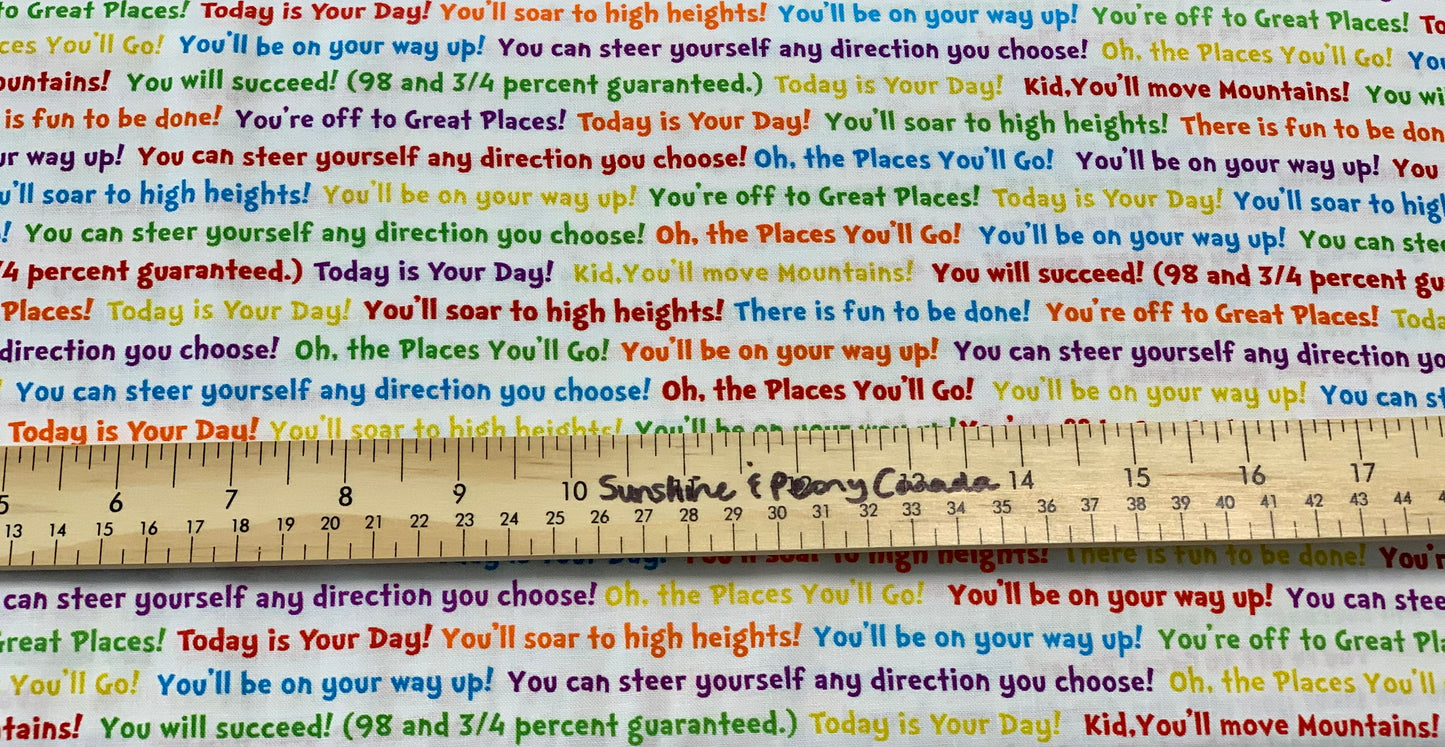 to Great Places! Today is Your Day! You'll soar to high heights! You'll be on your way up! You're off to Great Places! To
ces You'll Go! You'll be on your way up! You can steer yourself any direction you choose! Oh, the Places You'll Go! You
ountains! You will succeed! (98 and 3/4 percent guaranteed.) Today is Your Day! Kid,You'll move Mountains! You wi
is fun to be done! You're off to Great Places! Today is Your Day! You'll soar to high heights! There is fun to be don
ur way up! You can steer yourself any direction you choose! Oh, the Places You'll Go! You'll be on your way up! You
u'll soar to high heights! You'll be on your way up! You're off to Great Places! Today is Your Day! You'll soar to high
! You can steer yourself any direction you choose! Oh, the Places You'll Go! You'll be on your way up! You can stee
/4 percent guaranteed.) Today is Your Day! Kid,You'll move Mountains! You will succeed! (98 and 3/4 percent gu
Places! Today is Your Day! You'll soar to high heights! There is fun to be done! You're off to Great Places! Toda
direction you choose! Oh, the Places You'll Go! You'll be on your way up! You can steer yourself any direction yo
You can steer yourself any direction you choose! Oh, the Places You'll Go! You'll be on your way up! You can st
Today is Your Day! You'll soar to high heights! You'll be on your way up!
5 6 7 8 9 10 Sunshine & Peony Canada 14 15 16 17
13 14 15 16 17 18 19 20 21 22 23 24 25 26 27 28 29 30 31 32 33 34 35 36 37 38 39 40 41 42 43 44
Day! You'll soar to high heights! There is fun to be done! You'r
can steer yourself any direction you choose! Oh, the Places You'll Go! You'll be on your way up! You can stee
Great Places! Today is Your Day! You'll soar to high heights! You'll be on your way up! You're off to Great Pla
You'll Go! You'll be on your way up! You can steer yourself any direction you choose! Oh, the Places You'll
tains! You will succeed! (98 and 3/4 percent guaranteed.) Today is Your Day! Kid,You'll move Mountains!